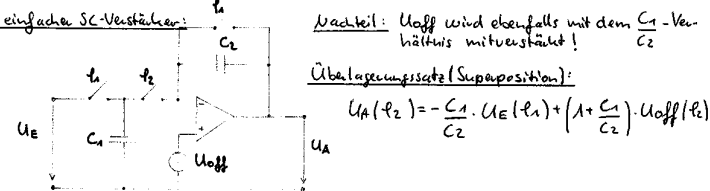 einfacher SC-Verstärker:
φ1
C2
φ1
φ2
UE
C1
-
+
Uoff
UA
Nachteil: Uoff wird ebenfalls mit dem C1/C2-Ver-
hältnis mitverstärkt!
Überlagerungssatz (Superposition):
UA(φ2) = -C1/C2 · UE(φ1) + (1 + C1/C2) · Uoff(φ2)